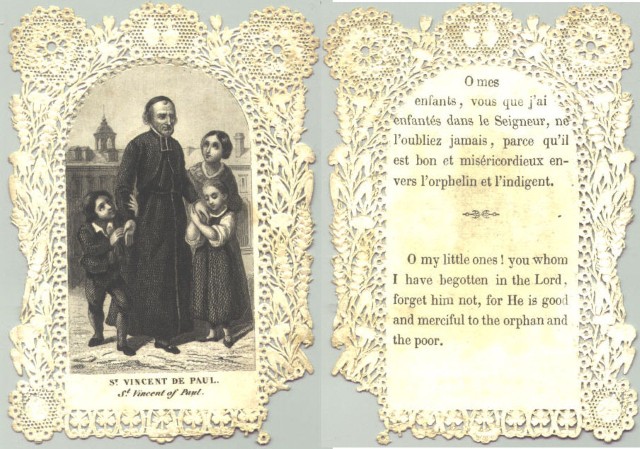 ST VINCENT DE PAUL.
St Vincent of Paul.
O mes
enfants, vous que j'ai
enfantés dans le Seigneur, ne
l'oubliez jamais, parce qu'il
est bon et miséricordieux en-
vers l'orphelin et l'indigent.
O my little ones! you whom
I have begotten in the Lord,
forget him not, for He is good
and merciful to the orphan and
the poor.